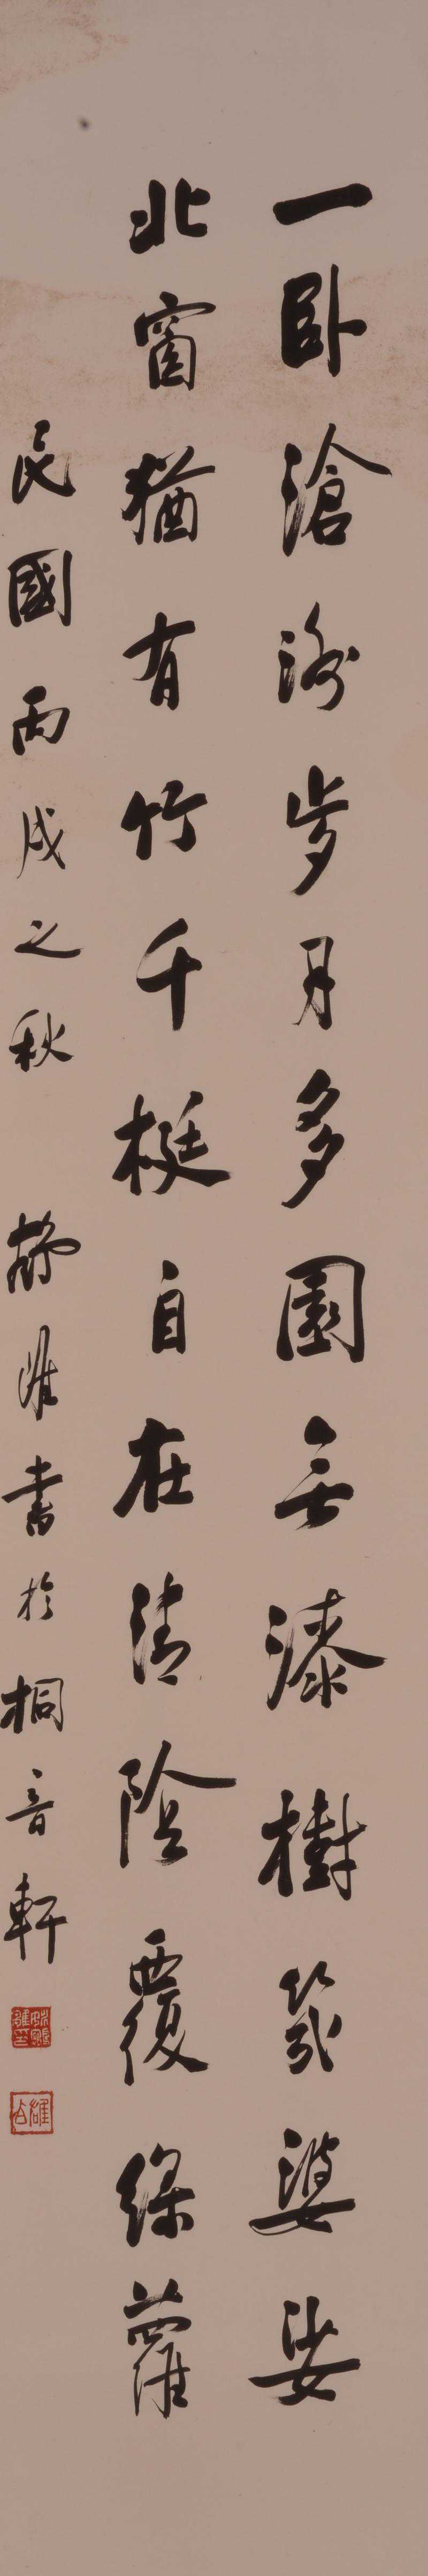 一卧滄洲歲月多園無漆樹幾婆娑
北窗猶有竹千梃自在清陰覆綠蘿
民國丙戌之秋 靜雄書於桐音軒